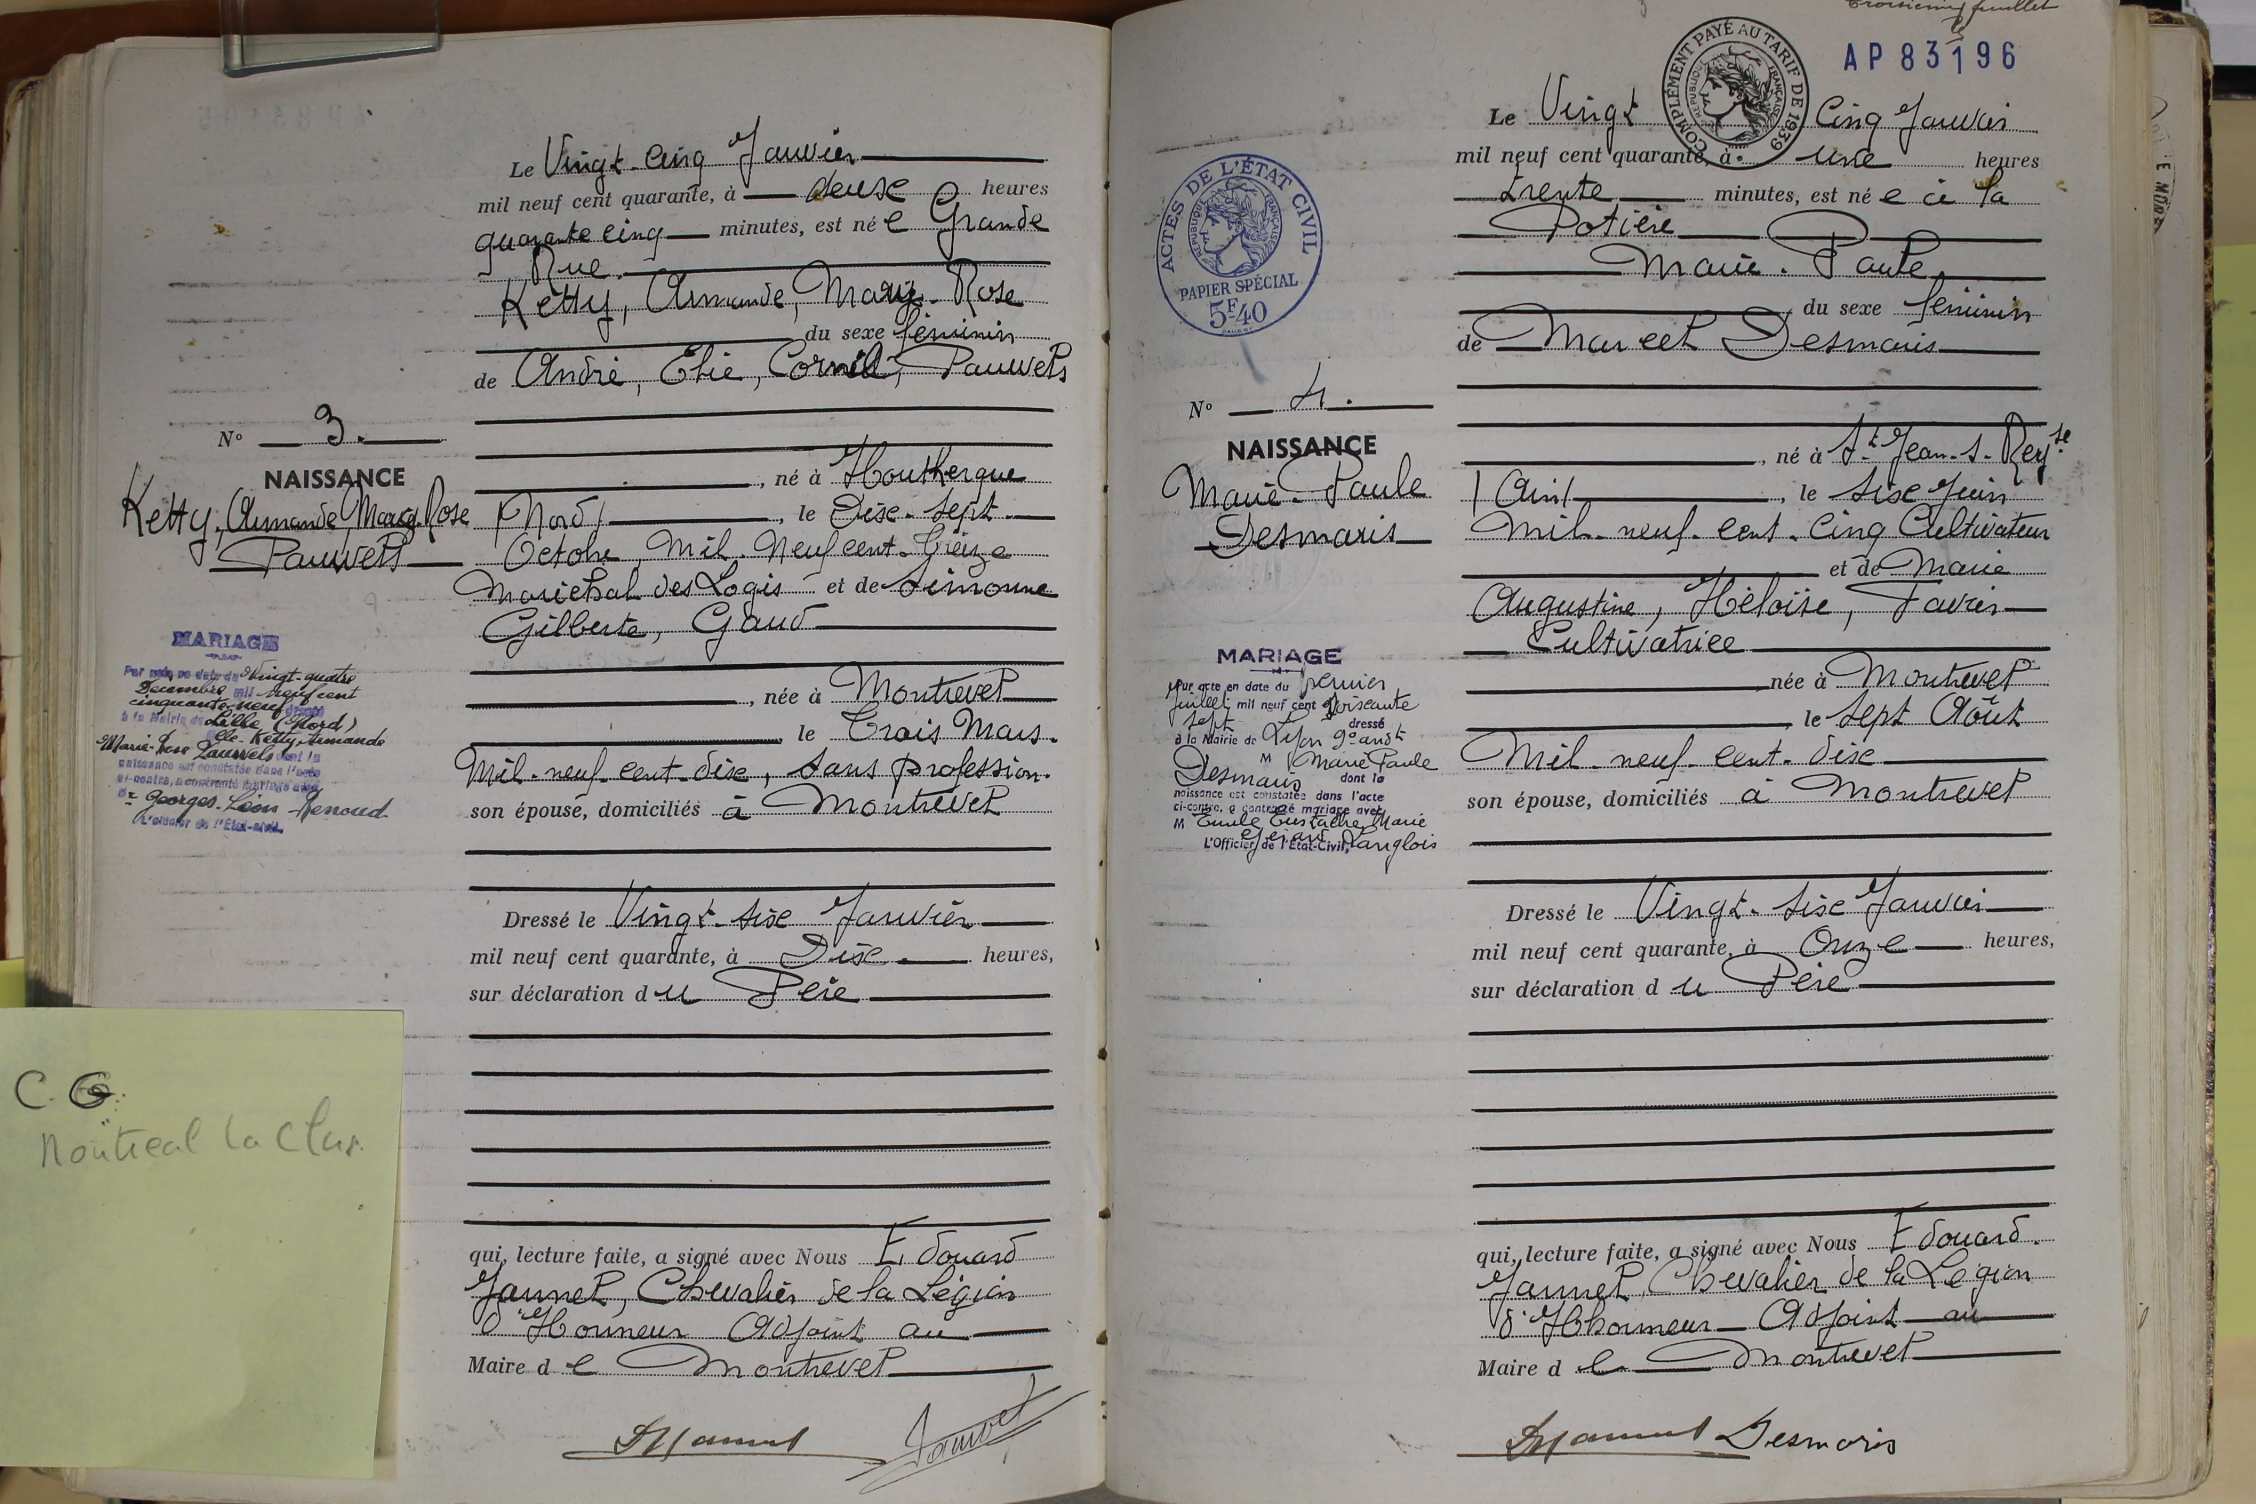 Le Vingt-cinq Janvier
mil neuf cent quarante, à deuxe heures
quarante cinq minutes, est né e Grande
Rue
Ketty, Armande, Mary-Rose
du sexe féminin
de André, Elie, Cornil, Pauwels
N° 3.
NAISSANCE
Ketty, Armande, Mary-Rose
Pauwels
, né à Houtkerque
(Nord), le Dix-sept
Octobre Mil-Neuf cent-Treize
Maréchal des Logis et de Simonne
Gilberte, Gaud
, née à Montrevel
le Trois Mars.
Mil-neuf-cent-dix, sans profession.
son épouse, domiciliés à Montrevel
MARIAGE
Par acte en date du Vingt-quatre
Décembre mil neuf cent
cinquante-neuf dressé
à la Mairie de Lille (Nord)
Elle Ketty, Armande
Marie-Rose Pauwels dont la
naissance est constatée dans l'acte
ci-contre, a contracté mariage avec
Mr Georges Léon Renoud
L'officier de l'État-civil,
Dressé le Vingt-six Janvier
mil neuf cent quarante, à Dix heures,
sur déclaration d u Père
qui, lecture faite, a signé avec Nous Edouard
Jannel, Chevalier de la Légion
d'Honneur Adjoint au
Maire d e Montrevel
C.G.
Montreal la Clus.
Troisième feuillet
AP 83196
COMPLÉMENT PAYÉ AU TARIF DE 1939
RÉPUBLIQUE FRANÇAISE
Le Vingt Cinq Janvier
mil neuf cent quarante, à une heures
trente minutes, est né e à la
Potière
Marie-Paule
du sexe féminin
de Marcel Desmaris
ACTES DE L'ÉTAT CIVIL
RÉPUBLIQUE FRANÇAISE
PAPIER SPÉCIAL
5F40
N° 4.
NAISSANCE
Marie-Paule
Desmaris
, né à St-Jean-s-Reysse
(Ain), le six Juin
mil-neuf-cent-cinq Cultivateur
et de Marie
Augustine, Héloïse, Favier
Cultivatrice
née à Montrevel
le sept Août
Mil-neuf-cent-dix
son épouse, domiciliés à Montrevel
MARIAGE
Par acte en date du premier
Juillet mil neuf cent soixante
sept dressé
à la Mairie de Lyon 9° arrdt
M Marie Paule
Desmaris dont la
naissance est constatée dans l'acte
ci-contre, a contracté mariage avec
M Emile Eustache Marie
Gérard Langlois
L'Officier de l'État-Civil,
Dressé le Vingt-six Janvier
mil neuf cent quarante, à Onze heures,
sur déclaration d u Père
qui, lecture faite, a signé avec Nous Edouard.
Jannel Chevalier de la Légion
d'Honneur Adjoint au
Maire d e Montrevel
Desmaris